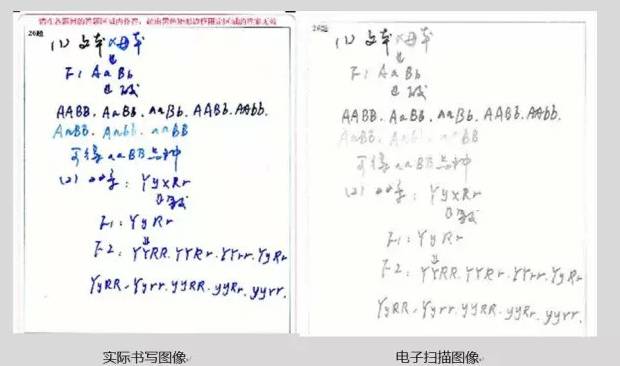 请在各题目的答题区域内作答，超出黑色矩形边框限定区域的答案无效
26题
(1) 父本 × 母本
F1 AaBb
AABB. AaBB. aaBb. AABb. AAbb.
AaBb. Aabb. aaBB
可得 aaBB 品种
(2) : Yy×Rr
F1: YyRr
F2: YYRR. YYRr. YYrr. YyRr
YyRR. Yyrr. yyRR. yyRr. yyrr.
26题
(1) 父本 × 母本
F1 AaBb
AABB. AaBB. aaBb. AABb. AAbb.
AaBb. Aabb. aaBB
可得 aaBB 品种
(2) : Yy×Rr
F1: YyRr
F2: YYRR. YYRr. YYrr. YyRr
YyRR. Yyrr. yyRR. yyRr. yyrr.
实际书写图像
电子扫描图像